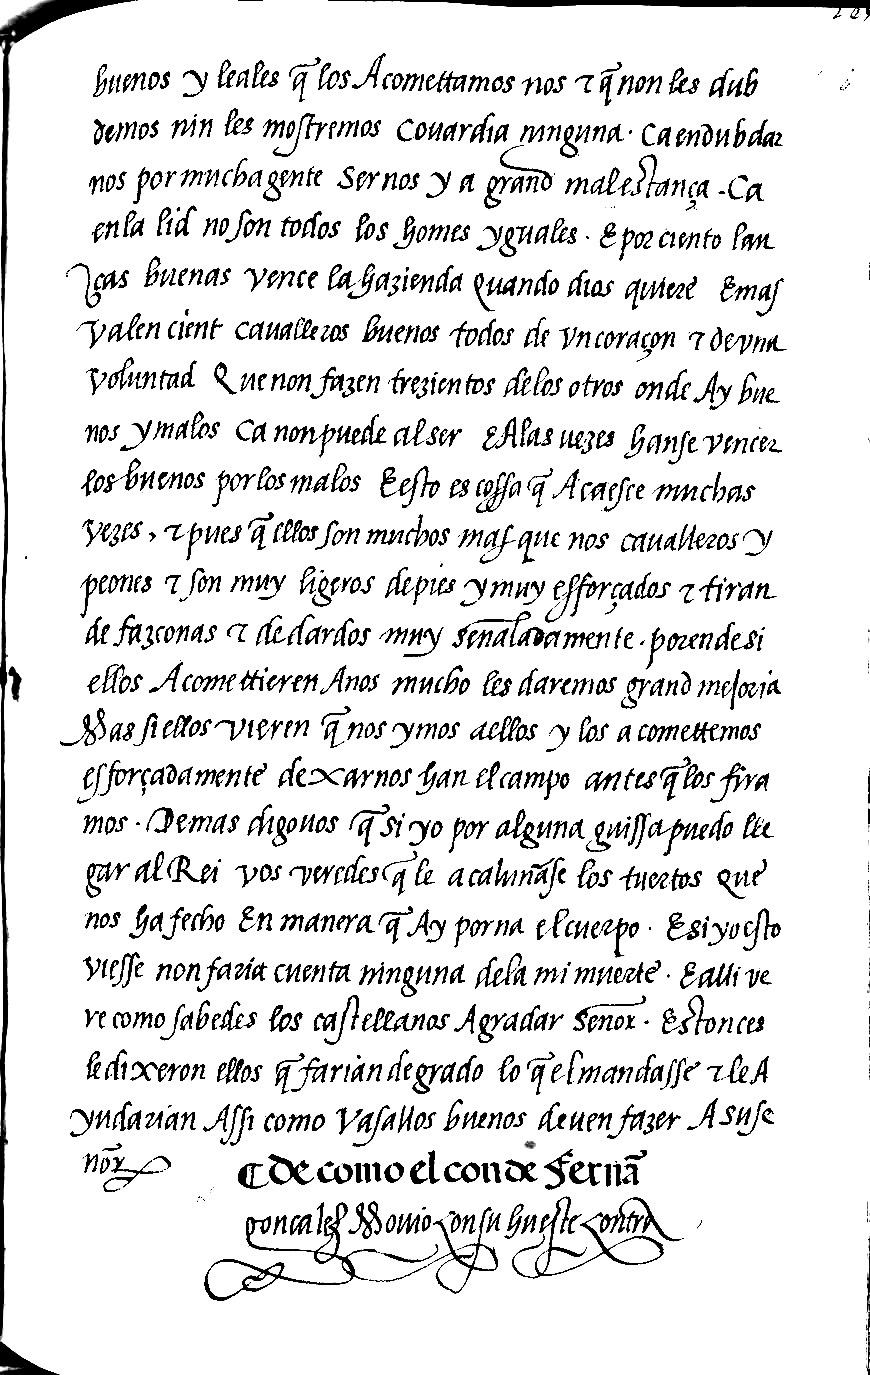 buenos y leales q̃ los Acomettamos nos τ q̃ non les dub
demos nin les mostremos Couardia ninguna · Ca en dubdar
nos por mucha gente Ser nos y a grand mal estança . Ca
en la lid no son todos los homes yguales · E por ciento lan
ças buenas vence la hazienda Quando dios quiere Emas
valen cient caualleros buenos todos de vn coraçon τ de vna
voluntad Que non fazen trezientos de los otros onde Ay bue
nos y malos Ca non puede al ser E Alas vezes hanse vencer
los buenos por los malos E esto es cossa q̃ Acaesce muchas
vezes, τ pues q̃ ellos son muchos mas que nos caualleros y
peones τ son muy ligeros de pies y muy esforçados τ tiran
de fazconas τ de dardos muy señaladamente . por ende si
ellos Acomettieren Anos mucho les daremos grand mejoria
Mas si ellos vieren q̃ nos ymos a ellos y los acomettemos
esforçadamente dexarnos han el campo antes q̃ los fira
mos · Demas digo uos q̃ si yo por alguna guissa puedo lle
gar al Rei vos veredes q̃ le acaluñase los tuertos que
nos ha fecho En manera q̃ Ay porna el cuerpo · E si yo esto
viesse non faria cuenta ninguna dela mi muerte · E alli ve
re como sabedes los castellanos Agradar Señor · Estonces
le dixeron ellos q̃ farian de grado lo q̃ el mandasse τ le A
yudarian Assi como Vasallos buenos deuen fazer A su se
ñor
¶ De como el conde Fernã
goncalez Mouio con su hueste contra